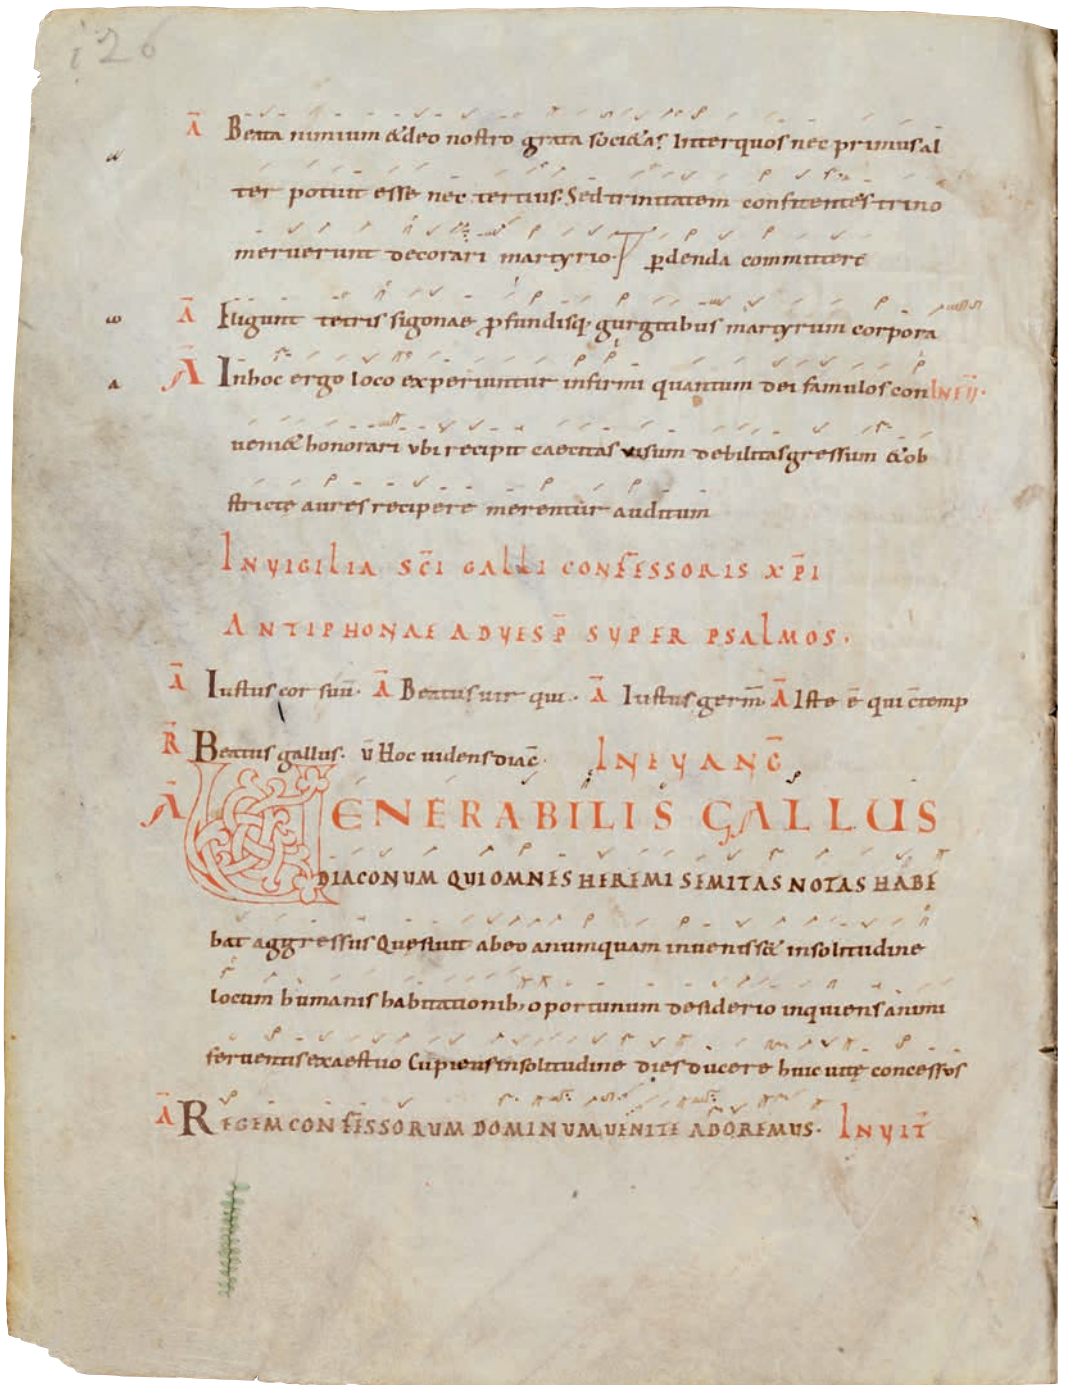 126
Ā Beata nimium & deo nostro grata soci&as. Inter quos nec primus al
ter potuit esse nec tertius. Sed trinitatem confitentes trino
meruerunt decorari martyrio. p̲denda committere
ω Ā Eligunt tetris sigonae p̲fundisq; gurgitibus martyrum corpora
a Ā Inhoc ergo loco experiuntur infirmi quantum dei famulos con IN EṼ.
ueni& honorari ubi recipit caecitas uisum debilitas gressum & ob
strictę aures recipere merentur auditum
IN VIGILIA SC̄I GALLI CONFESSORIS XP̄I
ANTIPHONAE AD VESP̄ SUPER PSALMOS.
Ā Iustus cor suū. Ā Beatus uir qui. Ā Iustus germ̄. Ā Iste ē qui c̄temp
R̄ Beatus gallus. ū Hoc uidens diac̄. IN EVANG̅
Ā VENERABILIS GALLUS
DIACONUM QUI OMNES HEREMI SEMITAS NOTAS HABE
bat aggressus Quesiuit abeo anumquam inueniss& insolitudine
locum humanis habitationib; oportunum desiderio inquiens animi
feruentis exaestuo Cupiens insolitudine dies ducere huic uitę concessos
Ā REGEM CONFESSORUM DOMINUM UENITE ADOREMUS. INVIT̄